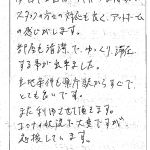 スタッフの方々の対応も良く、アットホーム
の感じがします。
部屋も清潔で、ゆっくり滞在
する事が出来ました。
立地条件も駅からすぐで
とても良いです。
また利用させて頂きます。
コロナの状況で大変ですが
応援しています。